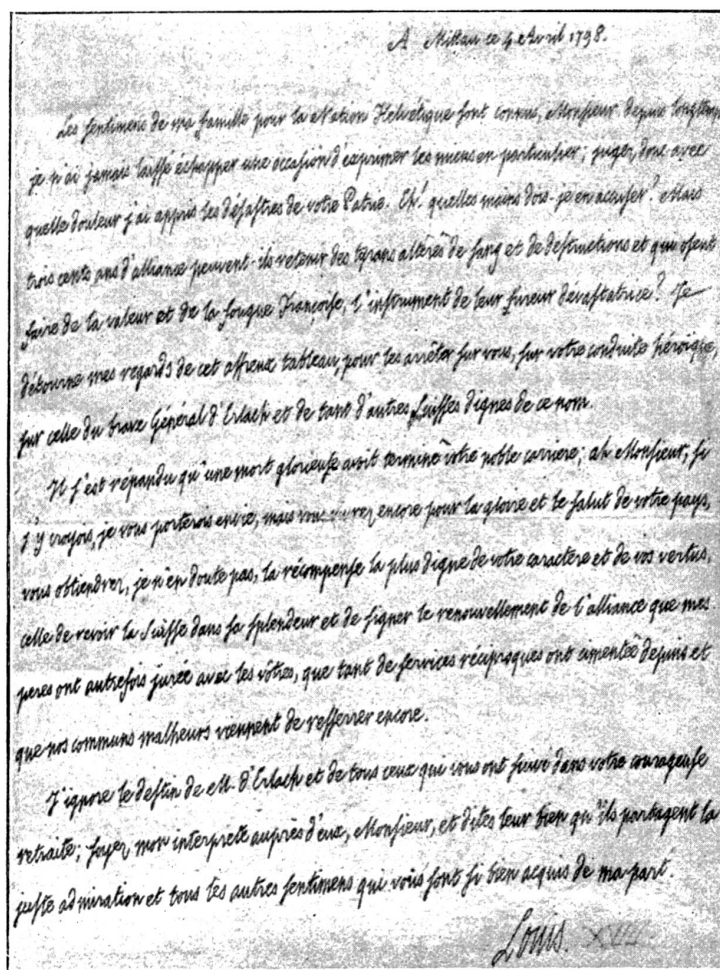 A Mittau ce 4 Avril 1798.
Les sentimens de ma famille pour la Nation Helvétique sont connus, Monsieur, depuis longtems,
je n'ai jamais laissé échapper une occasion d'exprimer les miens en particulier; jugez donc avec
quelle douleur j'ai appris les désastres de votre Patrie. Eh! quelles mains dois-je en accuser? Mais
trois cents ans d'alliance peuvent-ils retenir des tyrans altérés de sang et de destructions et qui osent
faire de la valeur et de la fougue Françoise, l'instrument de leur fureur dévastatrice? Je
détourne mes regards de cet affreux tableau, pour les arrêter sur vous, sur votre conduite héroïque,
sur celle du brave Général d'Erlach et de tant d'autres Suisses dignes de ce nom.
Il s'est répandu qu'une mort glorieuse avoit terminé votre noble carriere; ah Monsieur, si
j'y croyois, je vous porterois envie, mais encore pour la gloire et le salut de votre pays,
vous obtiendrez, je n'en doute pas, la récompense la plus digne de votre caractère et de vos vertus,
celle de revoir la Suisse dans sa splendeur et de signer le renouvellement de l'alliance que mes
peres ont autrefois jurée avec les vôtres, que tant de services réciproques ont cimentée depuis et
que nos communs malheurs viennent de resserrer encore.
J'ignore le destin de M. d'Erlach et de tous ceux qui vous ont suivi dans votre courageuse
retraite; soyez mon interprete auprès d'eux, Monsieur, et dites leur bien qu'ils partagent la
juste admiration et tous les autres sentimens qui vous sont si bien acquis de ma part.
Louis.